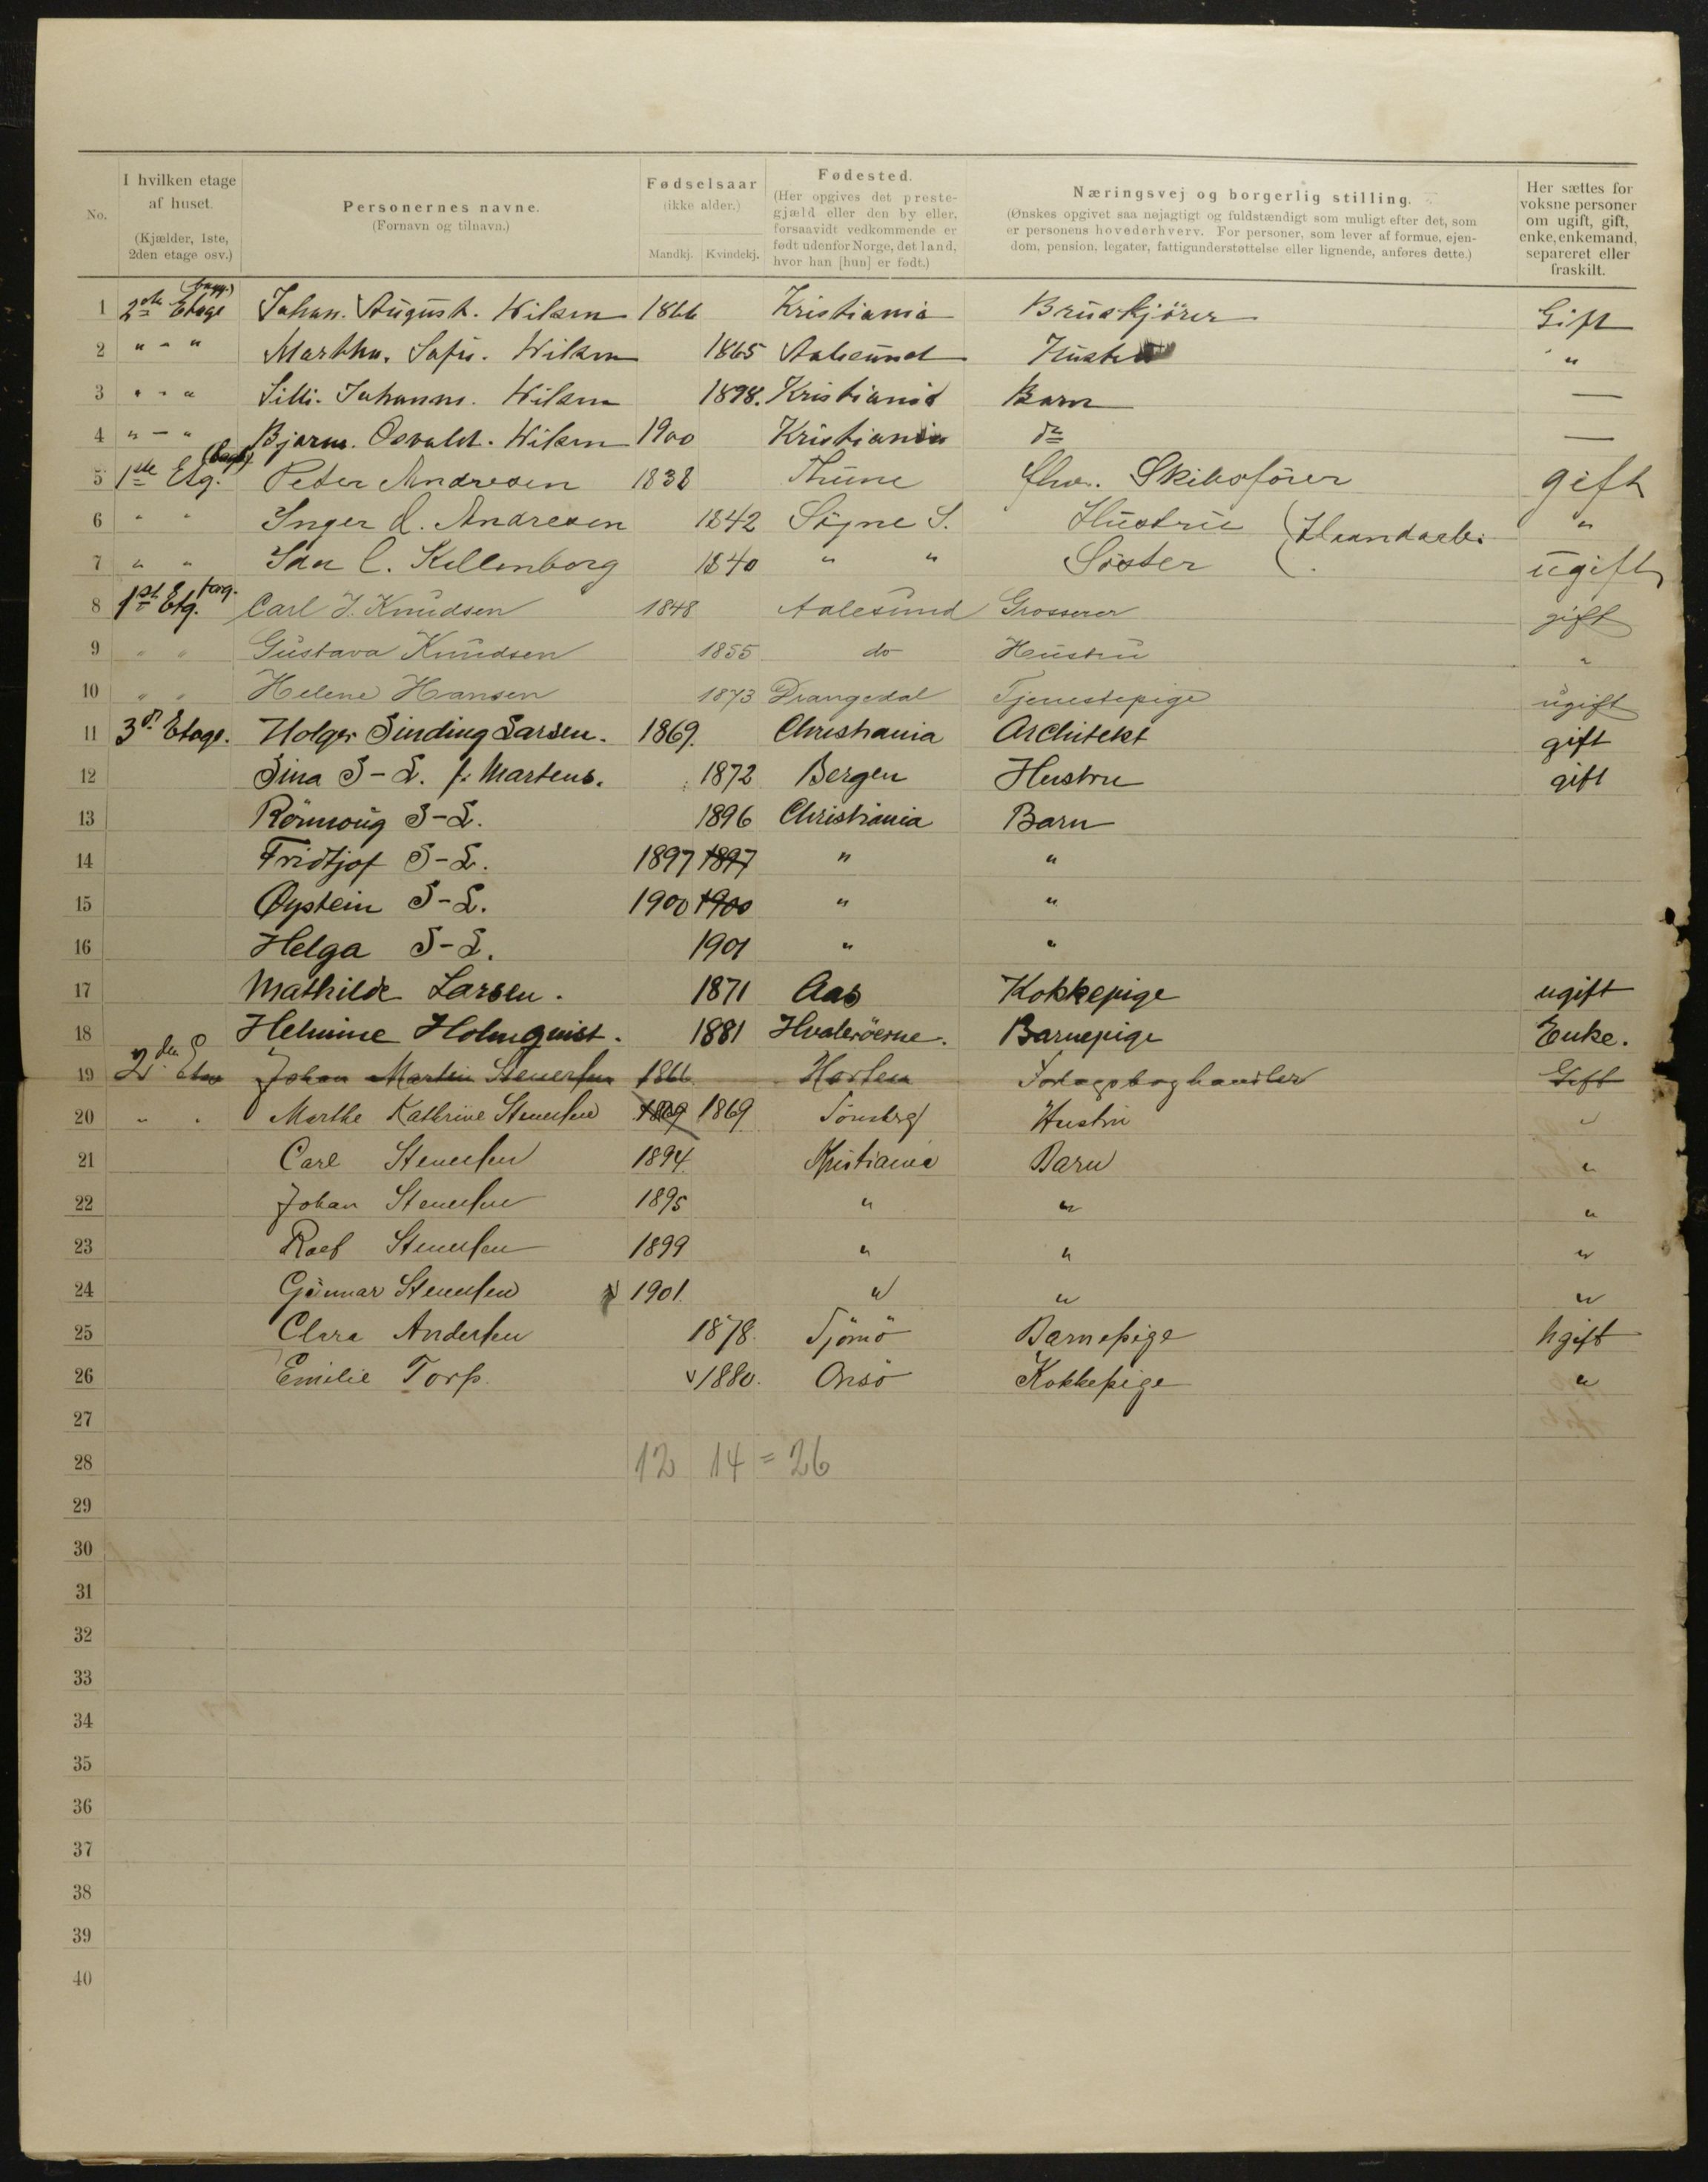 I hvilken etage af huset. (Kjælder, 1ste, 2den etage osv.)
No.
Personernes navne. (Fornavn og tilnavn.)
Fødselsaar (ikke alder.) Mandkj. Kvindekj.
Fødested. (Her opgives det prestegjæld eller den by eller, forsaavidt vedkommende er født udenfor Norge, det land, hvor han [hun] er født.)
Næringsvej og borgerlig stilling. (Ønskes opgivet saa nøjagtigt og fuldstændigt som muligt efter det, som er personens hovederhverv. For personer, som lever af formue, ejendom, pension, legater, fattigunderstøttelse eller lignende, anføres dette.)
Her sættes for voksne personer om ugift, gift, enke, enkemand, separeret eller fraskilt.
1 2den Etage Johan. August. Wilsen 1866 Kristiania Bruskjörer Gift
2 " - " Martha. Sofie. Wilsen 1865 Aalesund Hustru "
3 " - " Lilli. Johanne. Wilsen 1898. Kristiania Barn —
4 " - " Bjarne. Osvald. Wilsen 1900 Kristiania do —
5 1ste Etg. Peter Andresen 1838 Thune Skibsförer gift
6 " " Inger A. Andresen 1842 Sögne S. Hustru (Haandarb. "
7 " " Ida C. Kellenborg 1840 " " Söster ugift
8 1st Etg. forg. Carl J. Knudsen 1848 Aalesund Grosserer gift
9 " " Gustava Knudsen 1855 do Hustru "
10 " " Helene Hansen 1873 Drangedal Tjenestepige ugift
11 3d Etage. Holger Sinding Larsen. 1869. Christiania Architekt gift
12 Sina S-L. f. Martens. 1872 Bergen Hustru gift
13 Rönnoug S-L. 1896 Christiania Barn
14 Fridtjof S-L. 1897 1897 " "
15 Øystein S-L. 1900 1900 " "
16 Helga S-L. 1901 " "
17 Mathilde Larsen. 1871 Aas Kokkepige ugift
18 Helmine Holmquist. 1881 Hvaleröerne. Barnepige Enke.
19 2den Etage Johan Martin Stenersen 1866 Horten Forlagsboghandler Gift
20 " " Marthe Kathrine Stenersen 1869 1869 Tönsberg Hustru "
21 Carl Stenersen 1894 Kristiania Barn "
22 Johan Stenersen 1895 " " "
23 Rolf Stenersen 1899 " " "
24 Gunnar Stenersen 1901 " " "
25 Clara Andersen 1878. Tjömö Barnepige Ugift
26 Emilie Torp. 1880. Onsö Kokkepige "
27
28 12 14 = 26
29
30
31
32
33
34
35
36
37
38
39
40